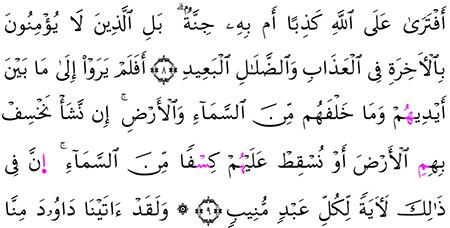 أَفْتَرَىٰ عَلَى ٱللَّهِ كَذِبًا أَم بِهِۦ جِنَّةٌۢ ۗ بَلِ ٱلَّذِينَ لَا يُؤْمِنُونَ
بِٱلْأَخِرَةِ فِى ٱلْعَذَابِ وَٱلضَّلَٰلِ ٱلْبَعِيدِ ﴿٨﴾ أَفَلَمْ يَرَوْا۟ إِلَىٰ مَا بَيْنَ
أَيْدِيهُمْ وَمَا خَلْفَهُم مِّنَ ٱلسَّمَآءِ وَٱلْأَرْضِ ۚ إِن نَّشَأْ نَخْسِفْ
بِهِمِ ٱلْأَرْضَ أَوْ نُسْقِطْ عَلَيْهُمْ كِسْفًا مِّنَ ٱلسَّمَآءِ ۚ إِنَّ فِى
ذَٰلِكَ لَأَيَةً لِّكُلِّ عَبْدٍ مُّنِيبٍ ﴿٩﴾ ۞ وَلَقَدْ ءَاتَيْنَا دَاوُۥدَ مِنَّا